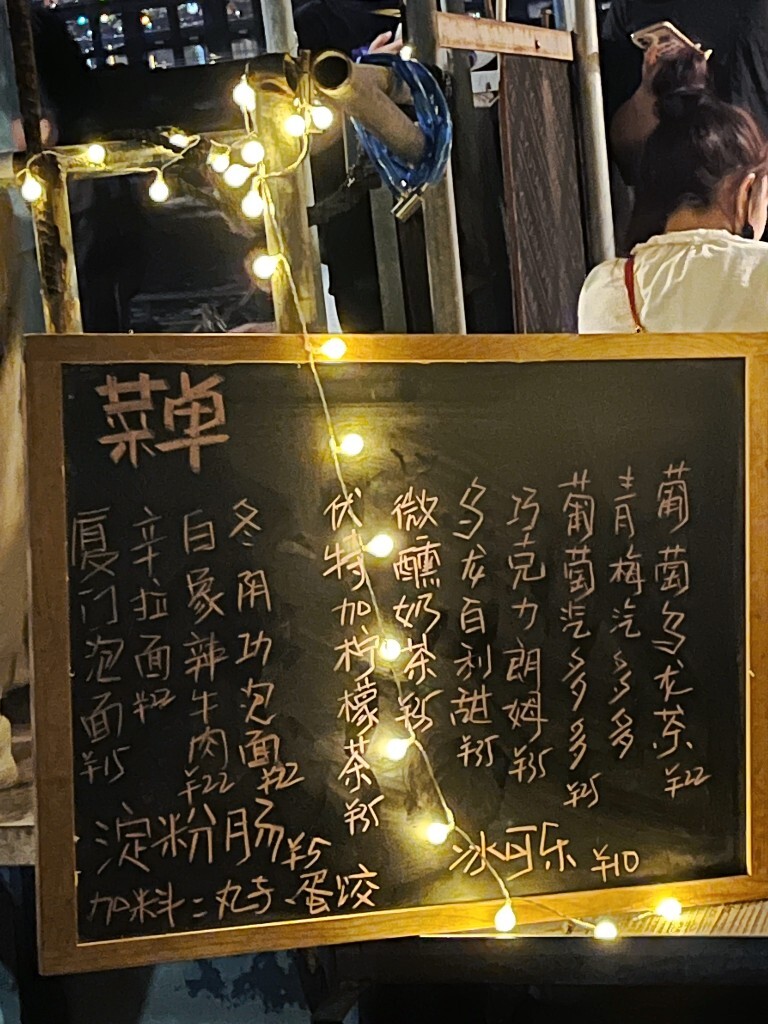 菜单
厦门泡面¥15
辛拉面¥22
白象辣牛肉¥22
冬阴功泡面¥22
伏特加柠檬茶¥35
微醺奶茶¥35
乌龙百利甜¥35
巧克力朗姆¥35
葡萄汽多多¥25
青梅汽多多
葡萄乌龙茶¥22
淀粉肠¥5
冰可乐 ¥10
加料：丸子、蛋饺